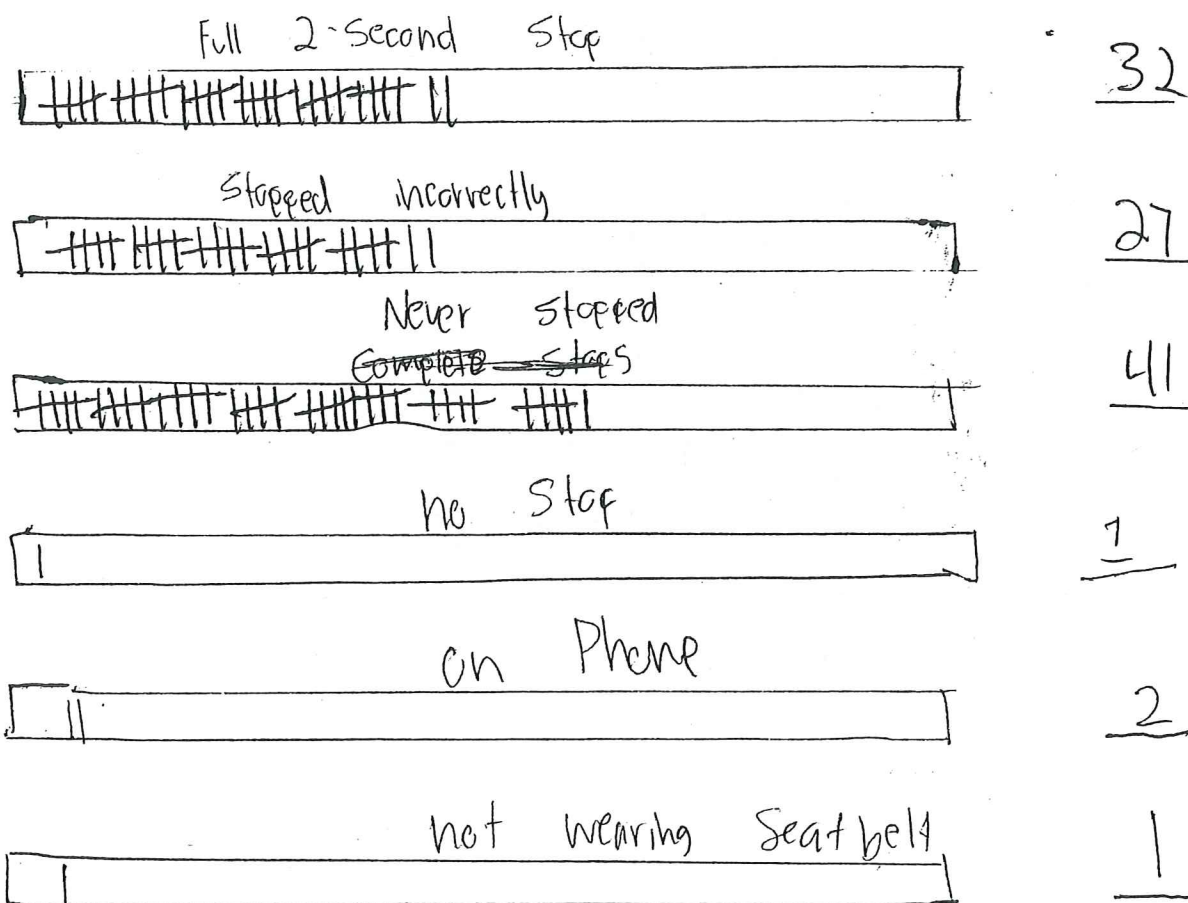 Full 2-Second Stop
32
Stopped incorrectly
27
Never stopped
Complete Stops
41
no Stop
1
on Phone
2
not wearing Seatbelt
1